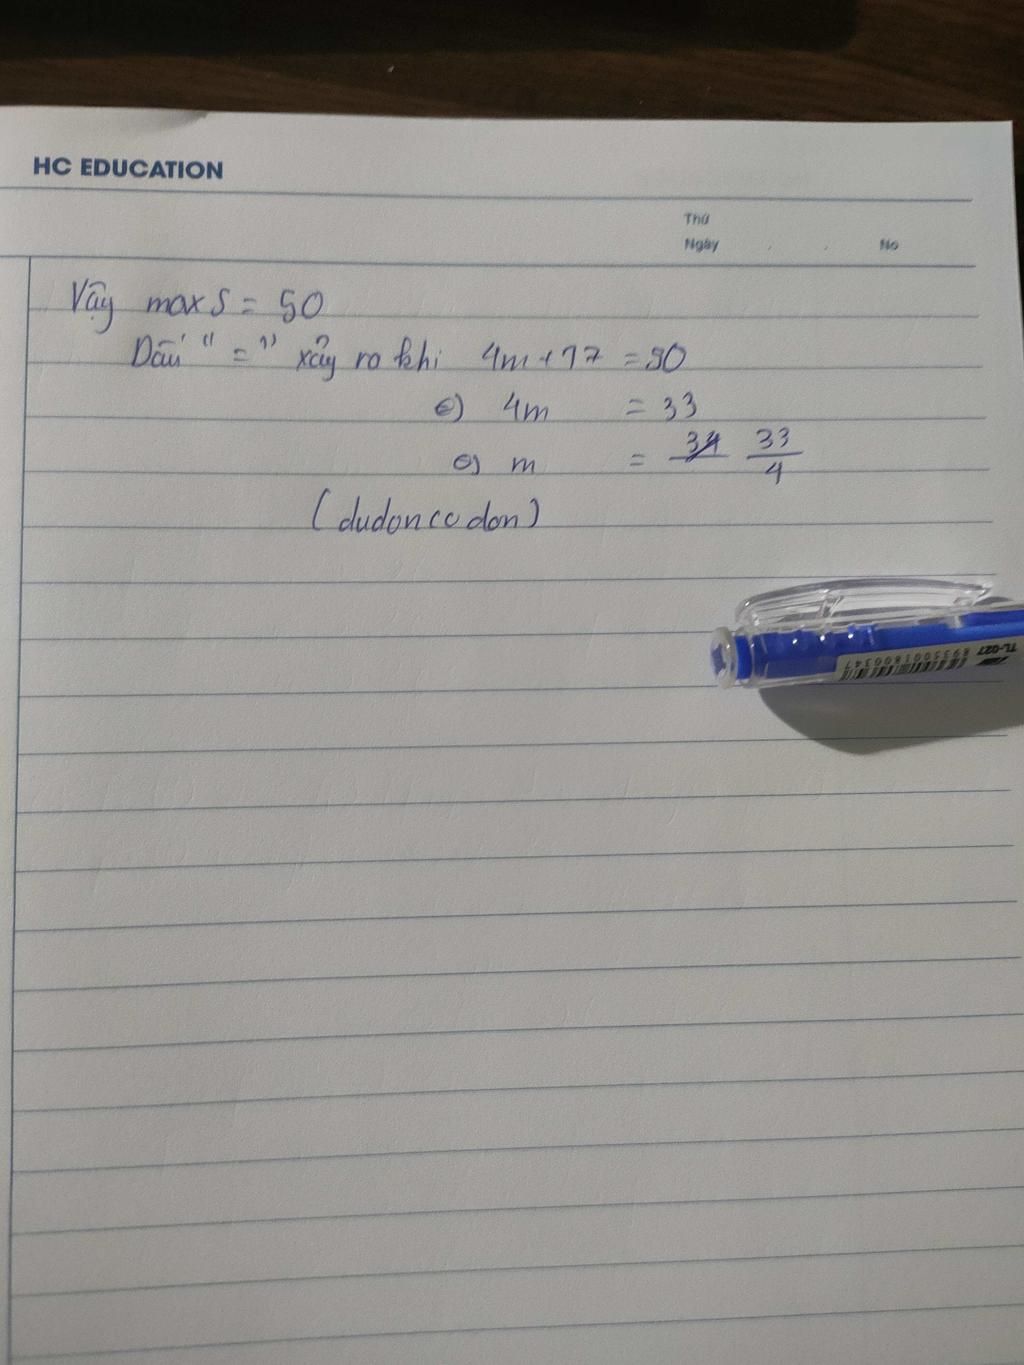 HC EDUCATION
Thứ
Ngày . . No
Vậy max S = 50
Dấu "=" xảy ra khi 4m + 17 = 50
⇔ 4m = 33
⇔ m = 33/4
(dudoncodon)
TL-027
8935001800347